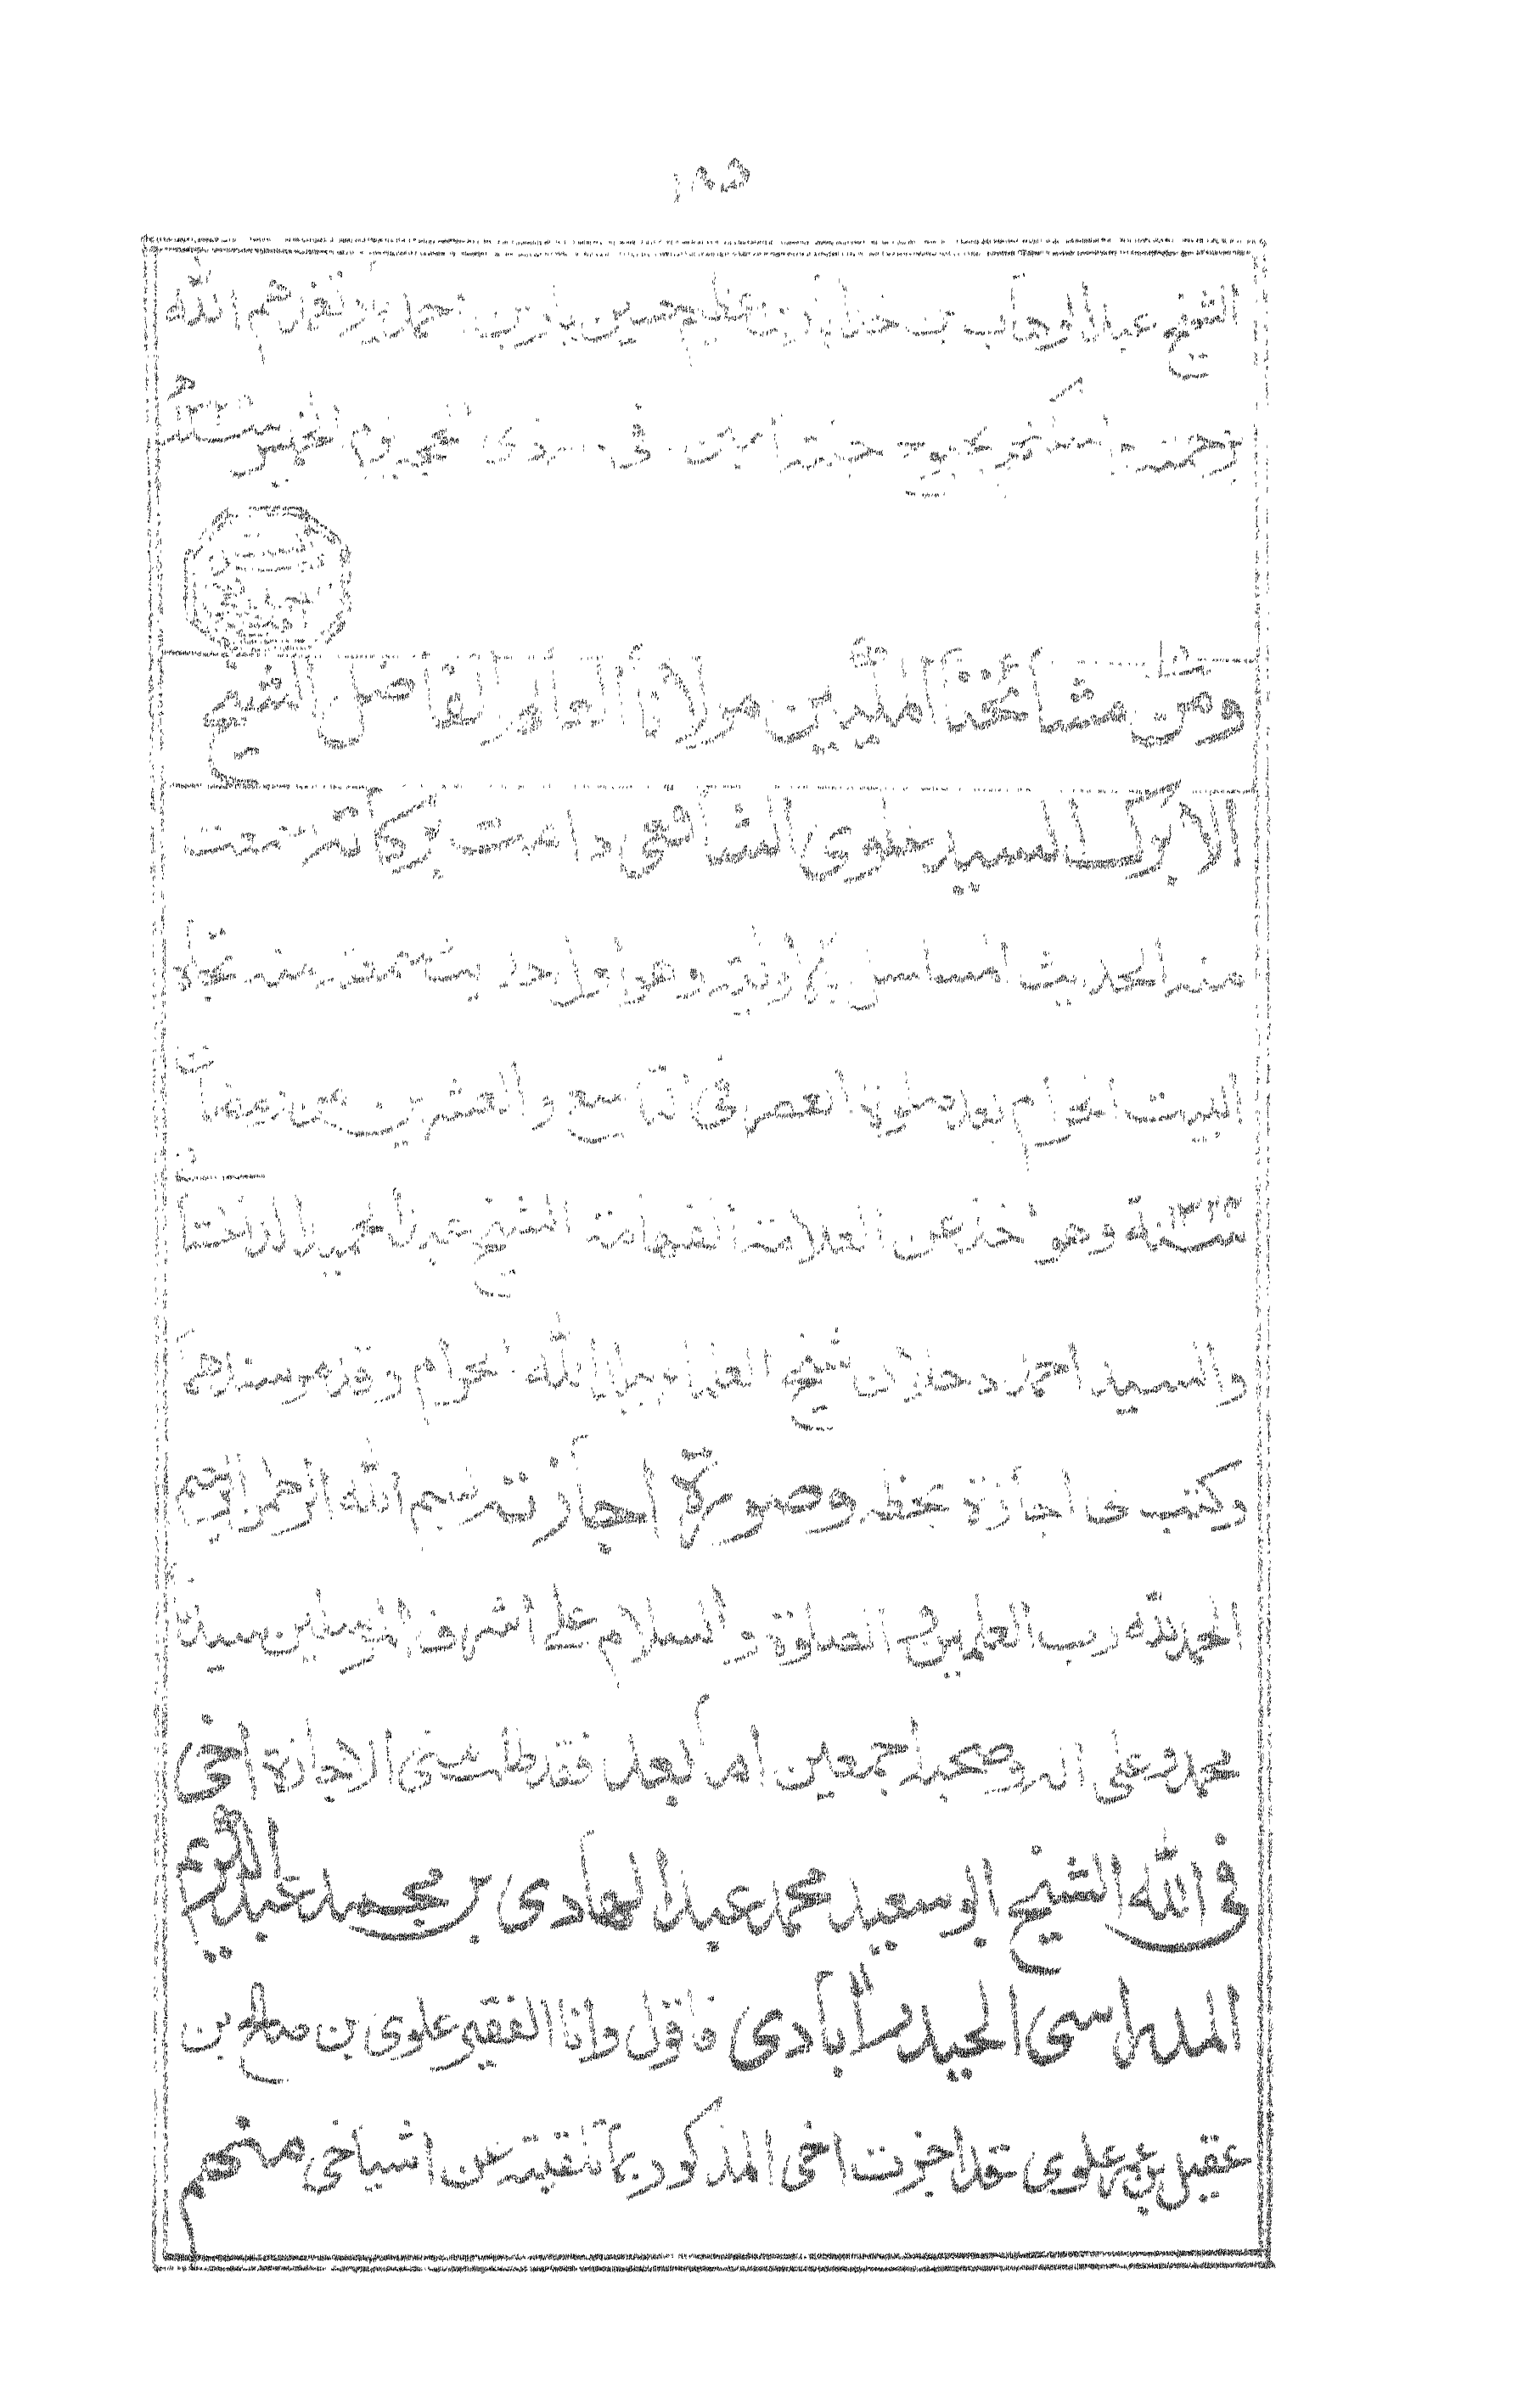 ١٩٥
الشيخ عبد الوهاب بن خدا بن عظيم حسين يار بن احمد يار تغمدهم الله
برحمته واسكنهم بحبوح جنته امين. في ذى الحجه يوم الخميس
ومن مشائخنا المكيين مولانا العالم الفاضل الشيخ
الابرك السيد علوى الشافعى دامت بركاته سمعت
منه الحديث المسلسل بالاولية وهو اول حديث سمعته منه تجاه
البيت الحرام بعد صلوة العصر في التاسع والعشرين من رمضان
سنة ١٣٢٣ وهو اخذ عن العلامة الفهامة الشيخ عبد الحميد الداغستانى
والسيد احمد دحلان شيخ العلماء ببلد الله الحرام وسندهما
وكتب لى اجازة بخطه وصورة اجازته بسم الله الرحمن الرحيم
الحمد لله رب العلمين والصلوة والسلام على اشرف المرسلين سيدنا
محمد وعلى اله وصحبه اجمعين اما بعد فقد طلب منى الاجازة اخى
فى الله الشيخ ابو سعيد محمد عبد الهادى بن محمد عبد الكريم
المدراسى الحيدر آبادى فاقول وانا الفقير علوى بن صالح بن
عقيل بن علوى قد اجزت اخى المذكور بما تلقيته عن اشياخى منهم